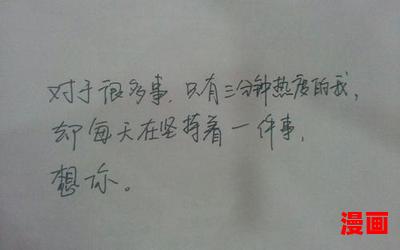 对于很多事，只有三分钟热度的我，
却每天在坚持着一件事，
想你。
漫画